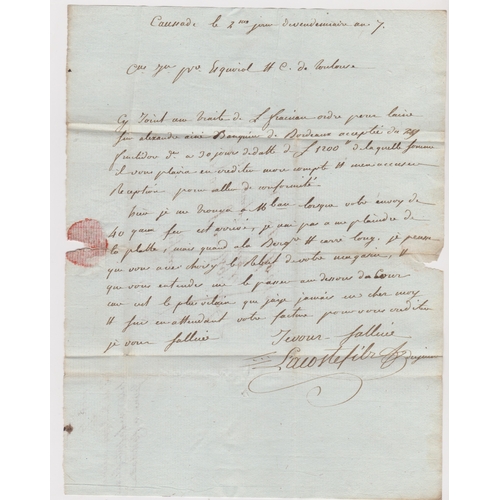 Caussade le 2me jour devendemiaire an 7.
Cns Jn pre Esquirol & C. de Toulouse
Cy Joint une Traite de L ordre pour laire
sur alexandre ainé Banquier de Bordeaux acceptée du 29
fructidor dr a 30 jours dedatte de £ 1200 delaquelle somme
il vous plaira en crediter mon compte & men accuser
Reception pour aller de conformité.
hier je me trouva a Mban lorsque votre envoy de
40 qaux fer est arrivé, je nai pas a me plaindre de
la platte, mais quand ala & carré long, je pense
que vous avez choisy le Rebut de votre magasin, &
que vous entendez me le passer au dessous du Cour
car est le plus vilain que jaye jamais eu chez moy
& suis en attendant votre facture pour vous crediter
je vous sallue
Jevous sallue
Lacoste fils